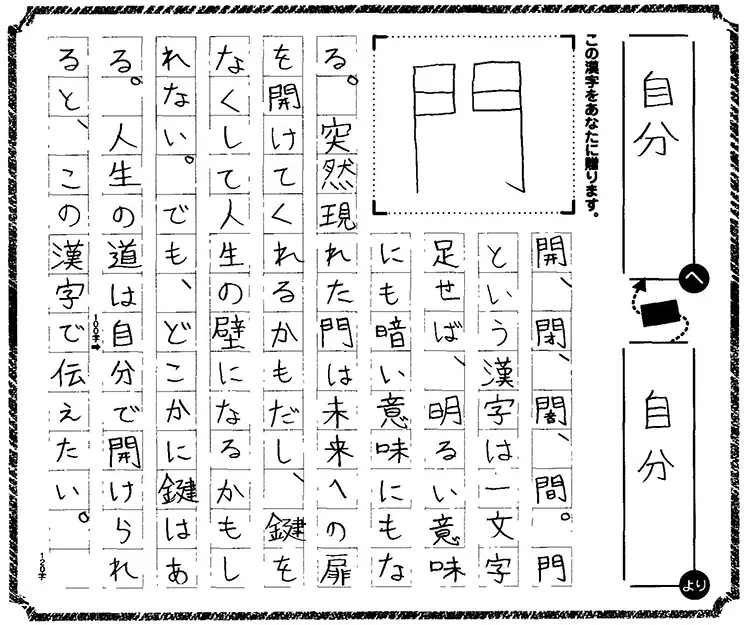 自分へ
自分より
この漢字をあなたに贈ります。
門
開、閉、闇、間。門
という漢字は一文字
足せば、明るい意味
にも暗い意味にもな
る。突然現れた門は未来への扉
を開けてくれるかもだし、鍵を
なくして人生の壁になるかもし
れない。でも、どこかに鍵はあ
る。人生の道は自分で開けられ
100字➡
ると、この漢字で伝えたい。
120字